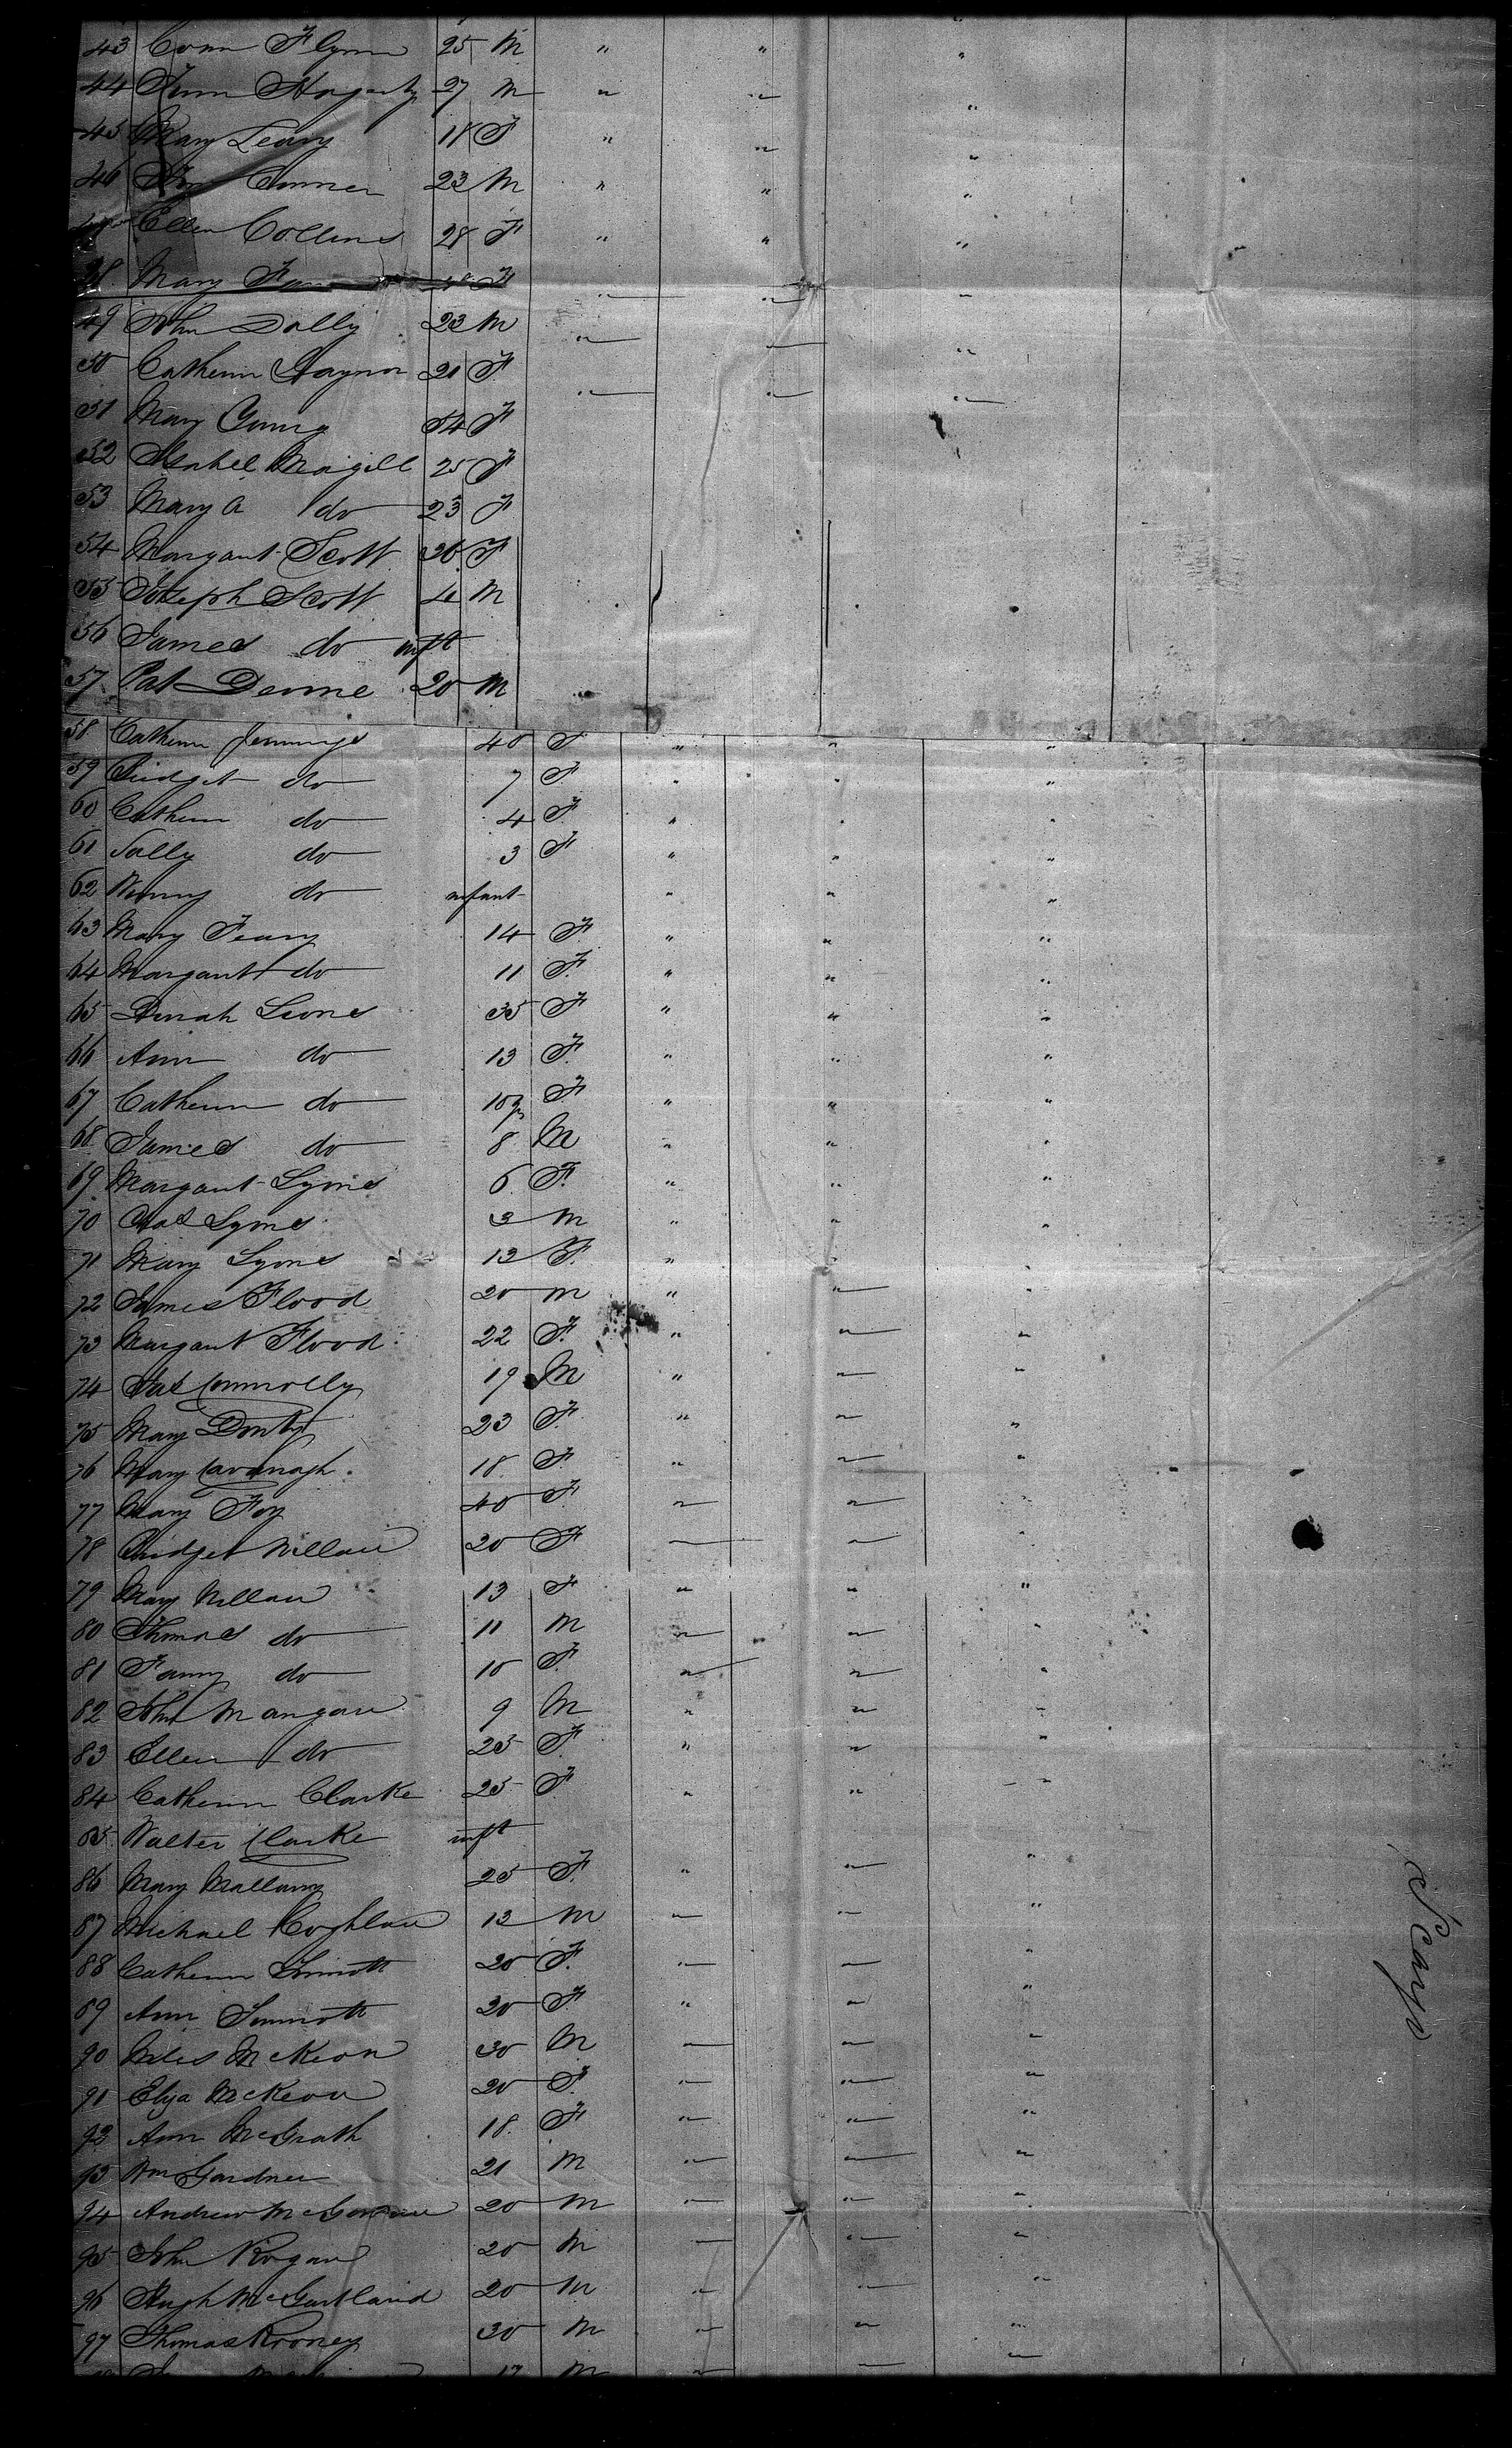 43 Conn Flynn 25 M " " "
44 Hogarty 27 M " " "
45 Mary Leary 18 F " " "
46 Connor 23 M " " "
47 Ellen Collins 28 F " " "
48 Mary F " " "
49 John Dally 23 M " " "
50 Catherin Gaynor 21 F " " "
51 Mary Young 54 F
52 Isabel Magill 25 F
53 Mary A do 23 F
54 Margaret Scott 26 F
55 Joseph Scott 4 M
56 James do inft
57 Pat Devine 20 M
58 Catherin Jennings 40 F " " "
59 Bridget do 7 F " " "
60 Catherin do 4 F " " "
61 Sally do 3 F " " "
62 Winny do infant " " "
63 Mary Feary 14 F " " "
64 Margaret do 11 F " " "
65 Lions 35 F " " "
66 Ann do 13 F " " "
67 Catherin do 10 F " " "
68 James do 8 M " " "
69 Margaret Lyons 6 F " " "
70 Pat Lyons 3 M " " "
71 Mary Lyons 12 F " " "
72 James Flood 20 M " " "
73 Margaret Flood 22 F " " "
74 Pat Connolly 19 M " " "
75 Mary 23 F " " "
76 Mary Cavanagh 18 F " " "
77 Mary Foy 40 F " " "
78 Bridget 20 F " " "
79 Mary 13 F " " "
80 Thomas do 11 M " " "
81 Fanny do 10 F " " "
82 John Mangan 9 M " " "
83 Ellen do 25 F " " "
84 Catherin Clarke 25 F " " "
85 Walter Clarke inft
86 Mary 25 F " " "
87 Michael Coghlan 12 M " " "
88 Catherin Sinnott 20 F " " "
89 Ann Sinnott 20 F " " "
90 Miles McKeon 30 M " " "
91 Eliza McKeon 20 F " " "
92 Ann McGrath 18 F " " "
93 Wm Gardner 21 M " " "
94 Andrew 20 M " " "
95 John Rogan 20 M " " "
96 Hugh McGartland 20 M " " "
97 Thomas Rooney 30 M " " "
17 M " " "